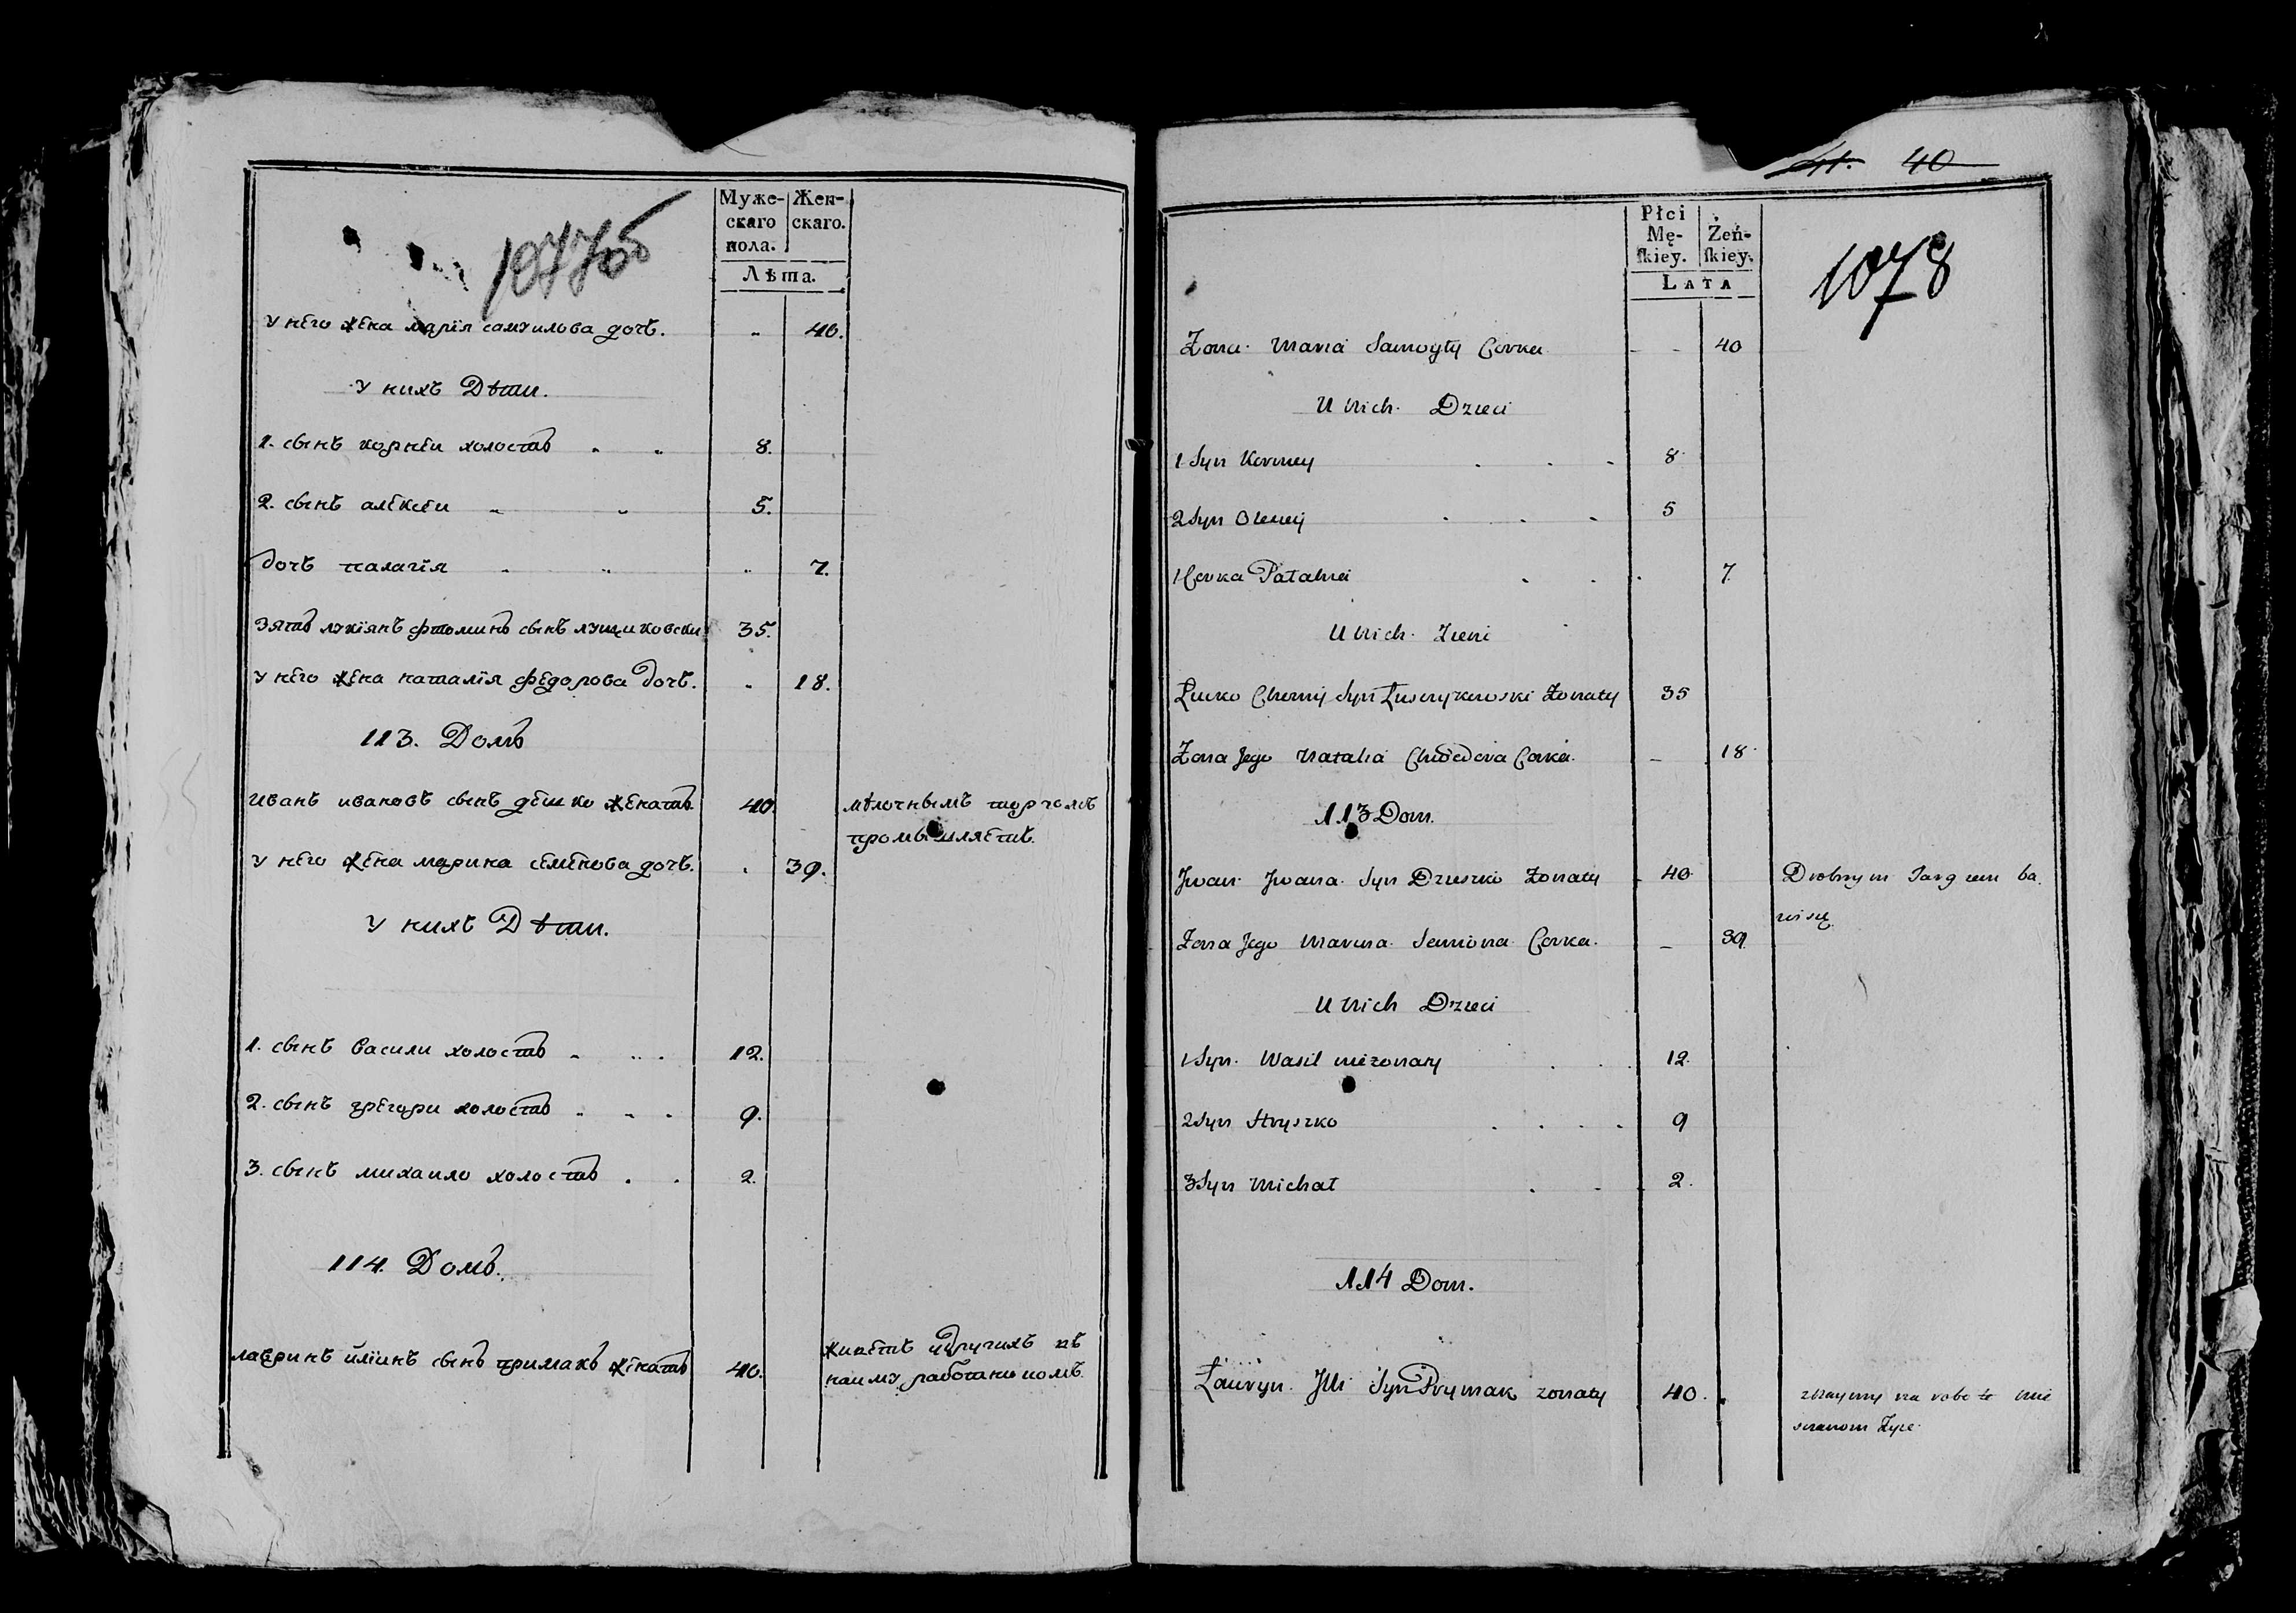 1077об
Муже-
скаго
пола.
Жен-
скаго.
Лѣта.
У него жена марія самуилова дочь. „ 40.
У нихъ Дѣти.
1. сынъ корнѣи холостъ „ „ 8.
2. сынъ алексеи „ „ 5.
дочь палагія „ „ „ 7.
Зять лукіянъ фтоминъ сынъ лущиковски 35.
У него жена наталія федорова дочь. „ 18.
113. Домъ
иванъ ивановъ сынъ дешко женатъ 40.
мѣлочнымъ торгомъ
промышляетъ.
У него жена марина семенова дочь. . 39.
У нихъ Дѣти.
1. сынъ васили холостъ „ „ . 12.
2. сынъ грегори холостъ . . . 9.
3. сынъ михаило холостъ . . 2.
114. Домъ.
лавринъ иліинъ сынъ примакъ женатъ 40.
живетъ удругихъ
наиму работаникомъ.
41. 40
1078
Płci
Mę-
skiey.
Żeń-
skiey.
LATA
Żona Maria Samoyły Corka - - 40
U Nich Dzieci
1 Syn Korniey . . . 8
2 Syn Olexiy . . . 5
1 Corka Palahia . . . 7
U Nich Zieni
Łucko Chomy Syn Łuszczykowski Żonaty 35
Żona Jego Natalia Chwedora Corka. – 18
113 Dom.
Jwan Jwana Syn Dzieszko Żonaty 40
Drobnym Targiem ba
wi się
Żona Jego Maryna Semiona Corka. – 39
U Nich Dzieci
1 Syn Wasil nieżonaty . . 12
2 Syn Hryszko . . . . 9
3 Syn Michał . . . 2.
114 Dom.
Ławryn Jlli Syn Prymak żonaty 40.
na robote
Żyie